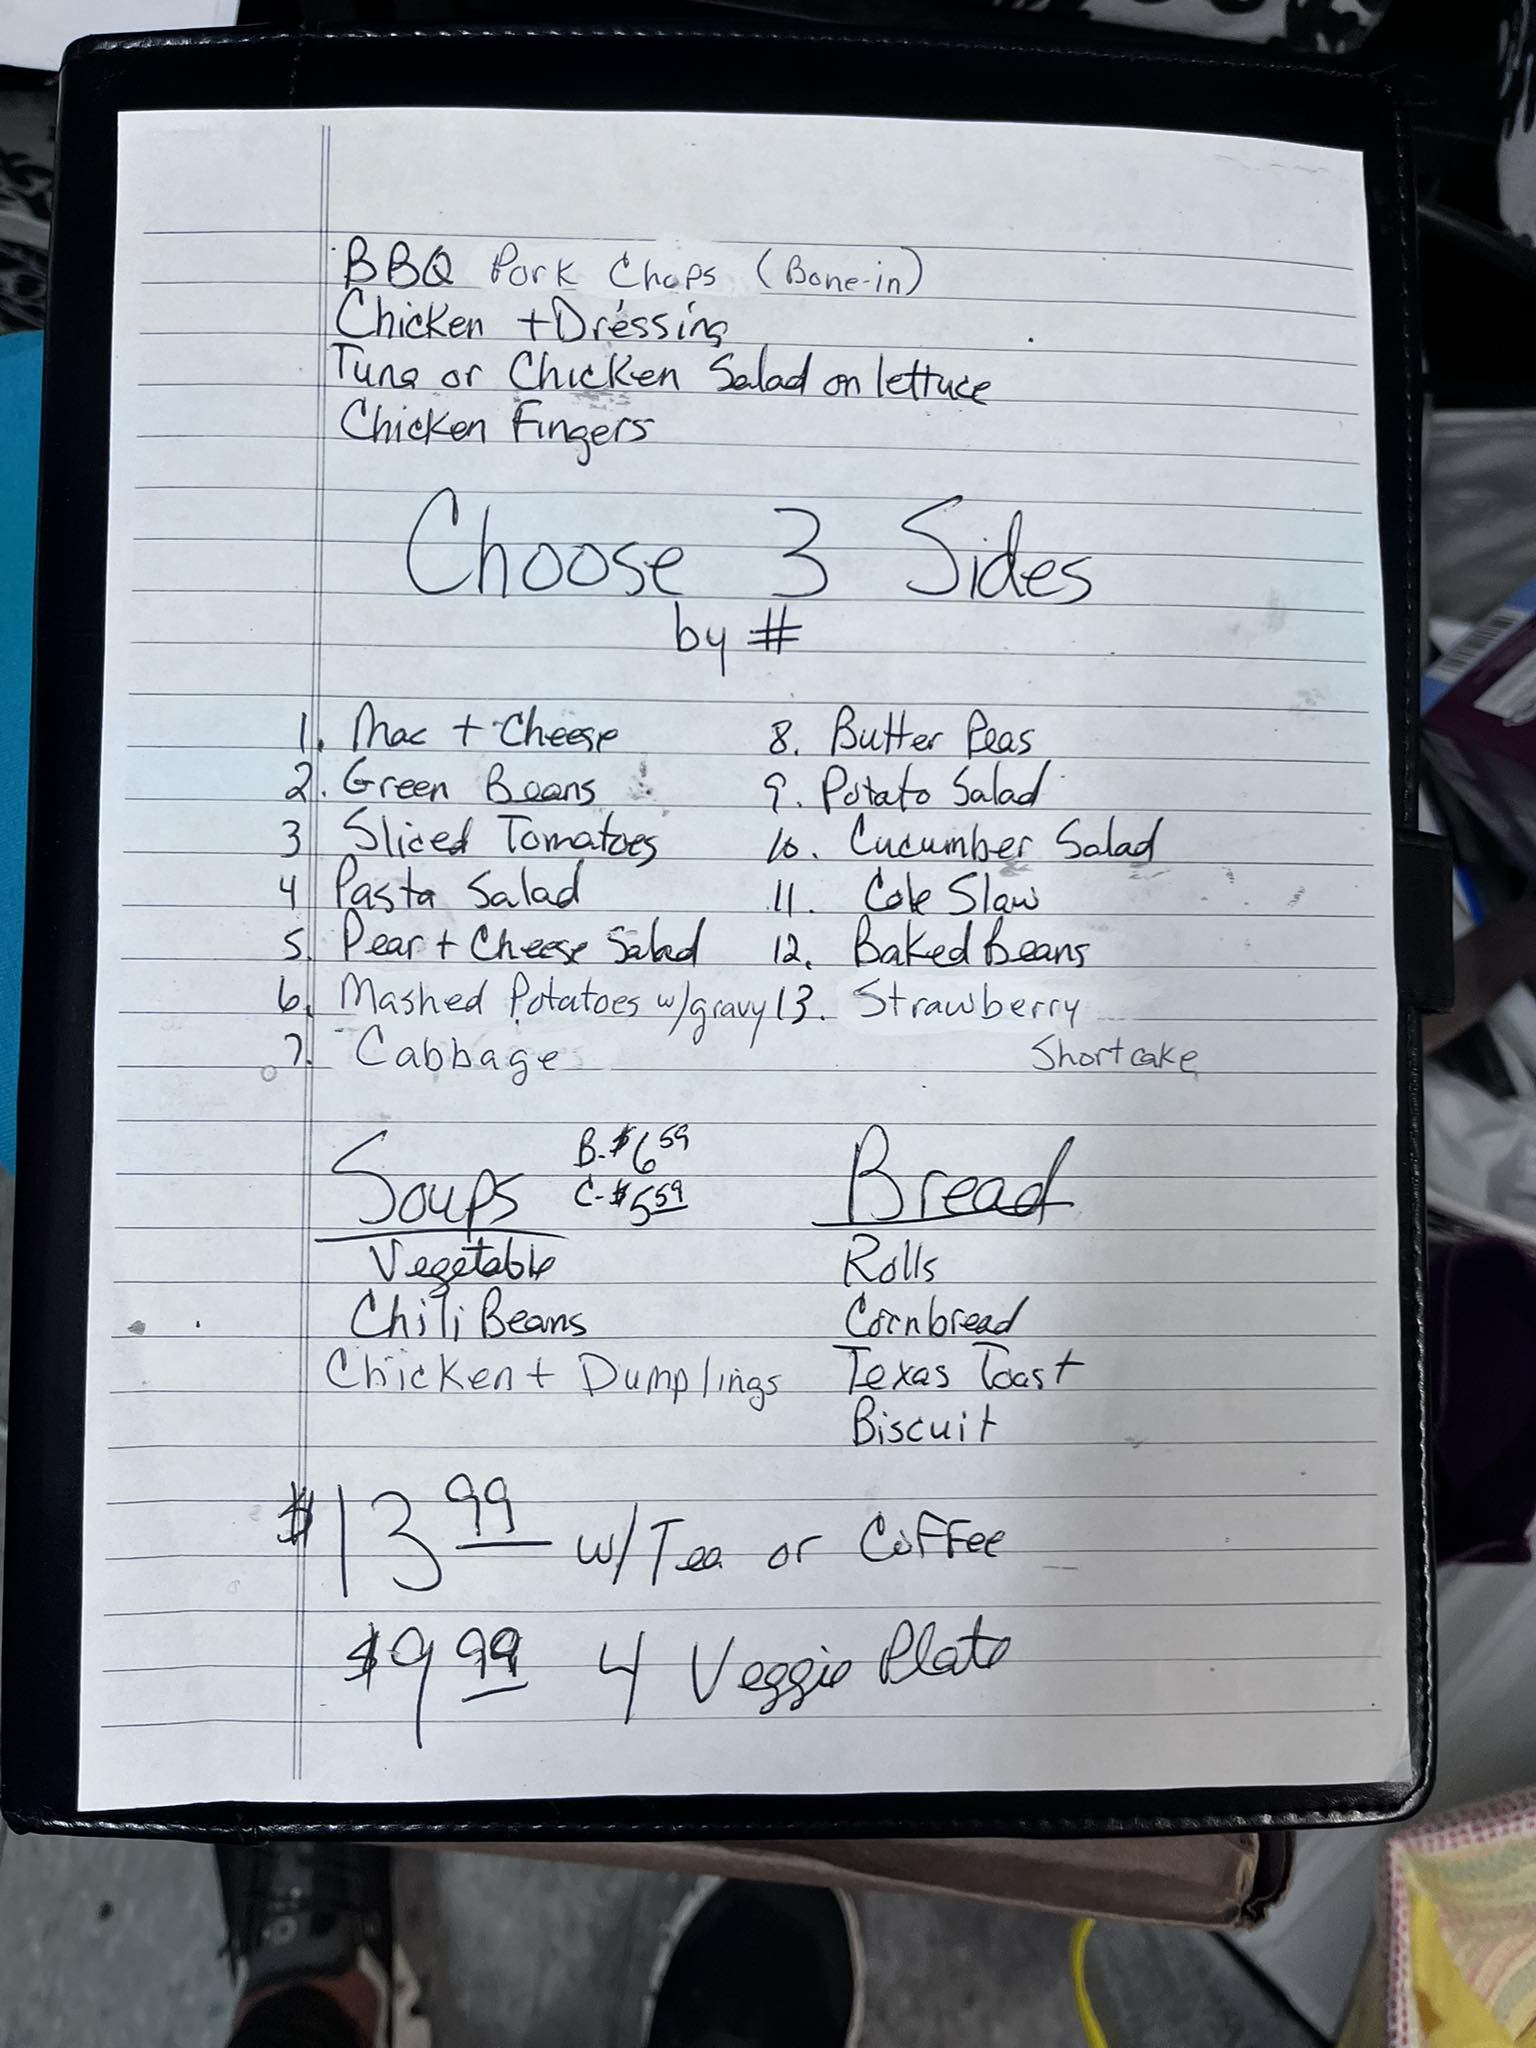 BBQ Pork Chops (Bone-in)
Chicken + Dressing
Tuna or Chicken Salad on lettuce
Chicken Fingers
Choose 3 Sides
by #
1. Mac + Cheese
2. Green Beans
3 Sliced Tomatoes
4 Pasta Salad
5. Pear + Cheese Salad
6. Mashed Potatoes w/gravy
7. Cabbage
8. Butter Peas
9. Potato Salad
10. Cucumber Salad
11. Cole Slaw
12. Baked Beans
13. Strawberry
Shortcake
Soups B-$6.59
C-$5.59
Vegetable
Chili Beans
Chicken + Dumplings
Bread
Rolls
Cornbread
Texas Toast
Biscuit
$13 99 w/Tea or Coffee
$9 99 4 Veggie Plate